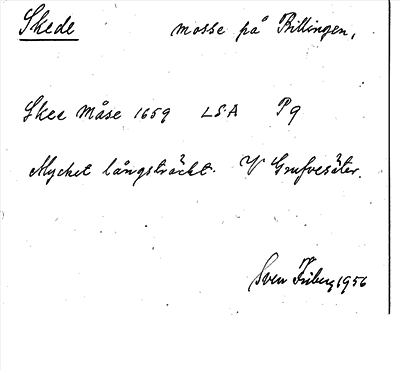 Skede mosse på Billingen,
Skee Måse 1659 LSA P9
Mycket långsträckt. V Grufvesäter.
Sven Friberg 1956